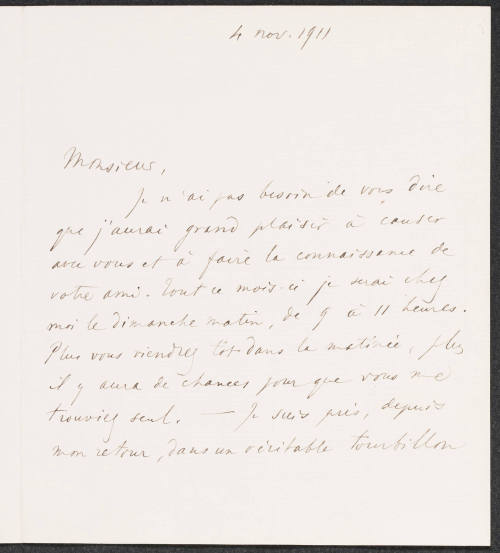 4 nov. 1911
Monsieur,
Je n'ai pas besoin de vous dire
que j'aurai grand plaisir à causer
avec vous et à faire la connaissance de
votre ami. Tout ce mois-ci je serai chez
moi le dimanche matin, de 9 à 11 heures.
Plus vous viendrez tôt dans la matinée, plus
il y aura de chances pour que vous me
trouviez seul. — Je suis pris, depuis
mon retour, dans un véritable tourbillon